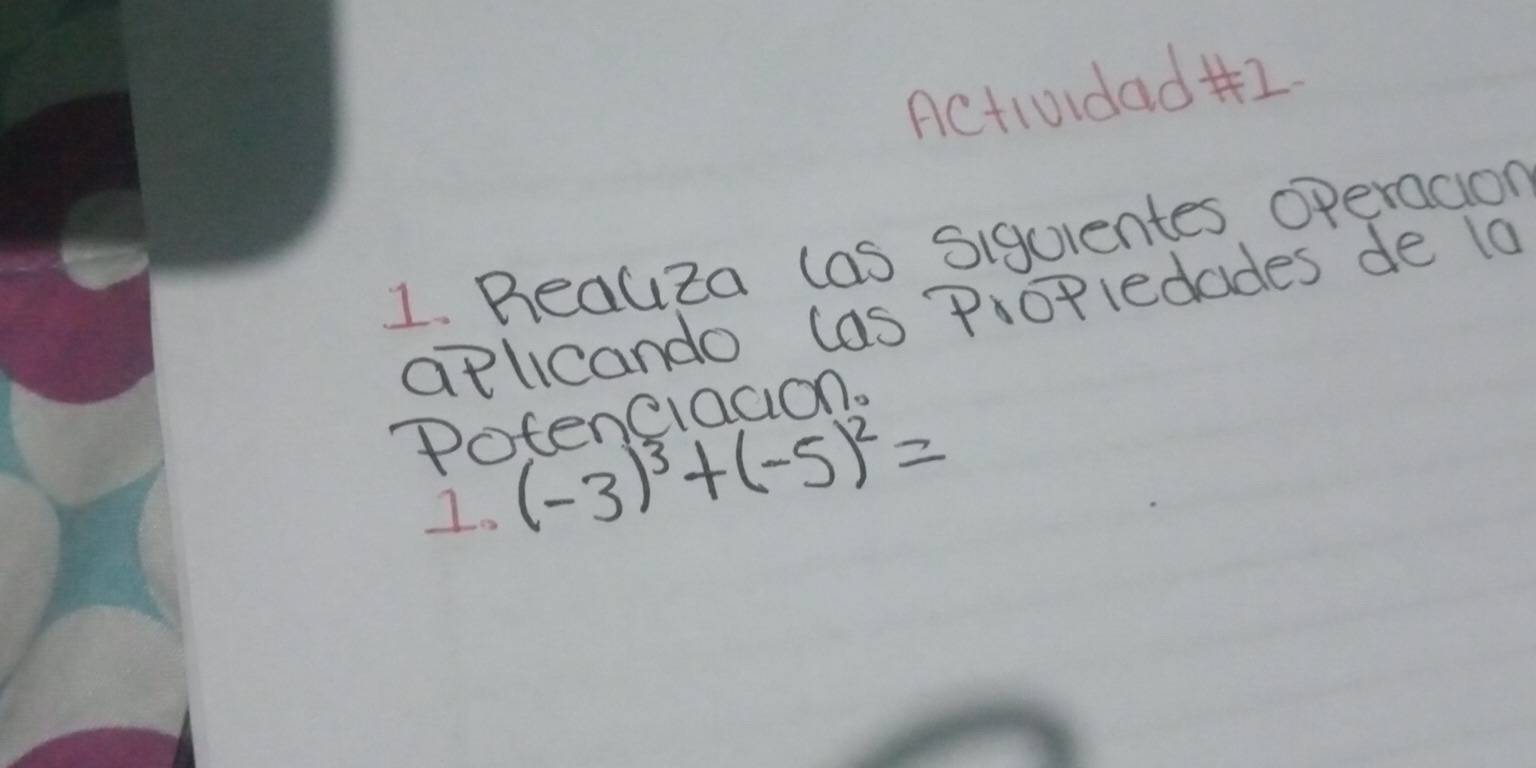 Actividad #1.
1. Realiza las siguientes operacion
aplicando las Propiedades de la
Potenciacion.
1. (-3)³+(-5)²=